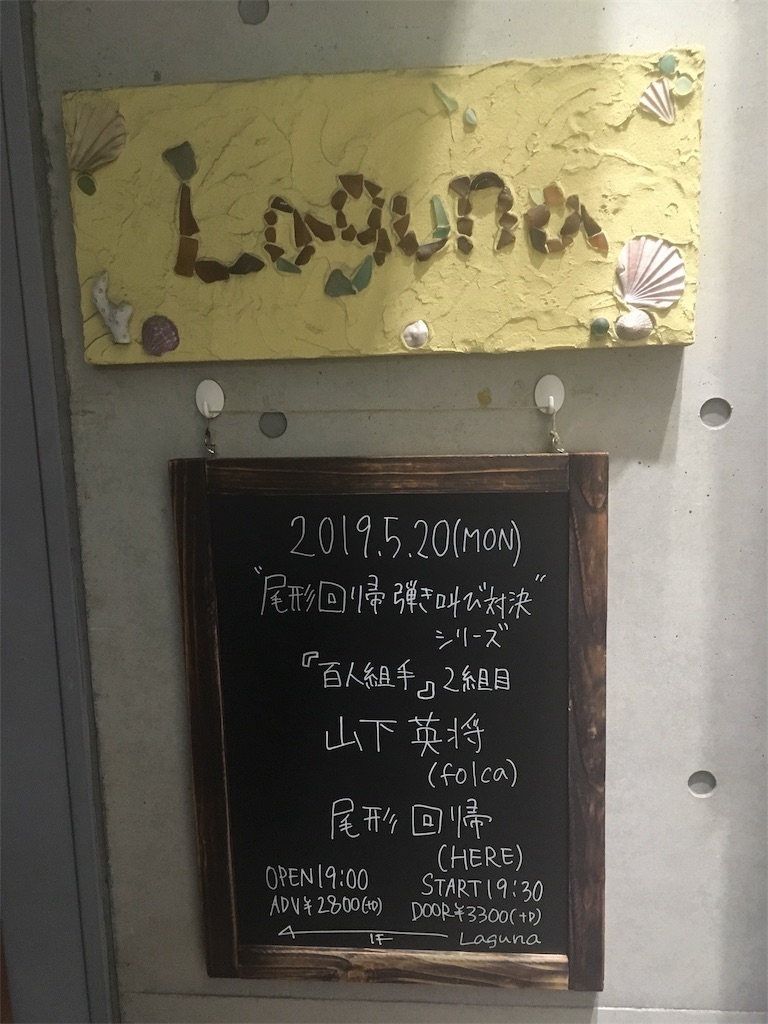 Laguna
2019.5.20(MON)
"尾形回帰 弾き叫び対決"
シリーズ
『百人組手』2組目
山下英将
(folca)
尾形回帰
(HERE)
OPEN19:00 START19:30
ADV¥2800(+D) DOOR¥3300(+D)
1F Laguna